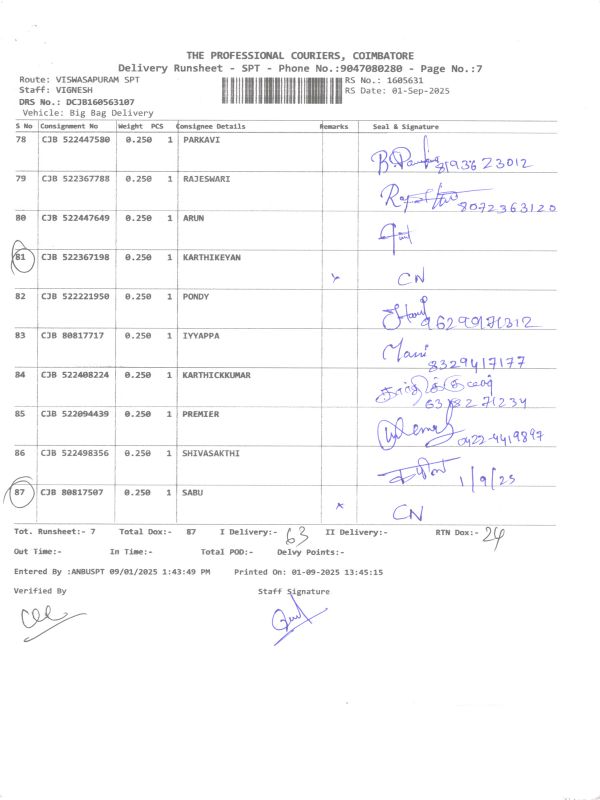 THE PROFESSIONAL COURIERS, COIMBATORE
Delivery Runsheet - SPT - Phone No.:9047080280 - Page No.:7
Route: VISWASAPURAM SPT RS No.: 1605631
Staff: VIGNESH RS Date: 01-Sep-2025
DRS No.: DCJB160563107
Vehicle: Big Bag Delivery
S No Consignment No Weight PCS Consignee Details Remarks Seal & Signature
78 CJB 522447580 0.250 1 PARKAVI
8193623012
79 CJB 522367788 0.250 1 RAJESWARI
8072363120
80 CJB 522447649 0.250 1 ARUN
81 CJB 522367198 0.250 1 KARTHIKEYAN
x CN
82 CJB 522221950 0.250 1 PONDY
83 CJB 80817717 0.250 1 IYYAPPA
Mani
8329417177
84 CJB 522408224 0.250 1 KARTHICKKUMAR
85 CJB 522094439 0.250 1 PREMIER
0422-4419897
86 CJB 522498356 0.250 1 SHIVASAKTHI
1/9/25
87 CJB 80817507 0.250 1 SABU
x CN
Tot. Runsheet:- 7 Total Dox:- 87 I Delivery:- 63 II Delivery:- RTN Dox:- 24
Out Time:- In Time:- Total POD:- Delvy Points:-
Entered By :ANBUSPT 09/01/2025 1:43:49 PM Printed On: 01-09-2025 13:45:15
Verified By Staff Signature